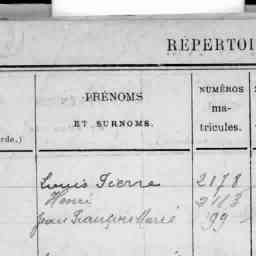 RÉPERTOI
PRÉNOMS
ET SURNOMS.
NUMÉROS
ma-
tricules.
orde.)
Louis Pierre 2178
Henri 2113
Jean François Marie 99